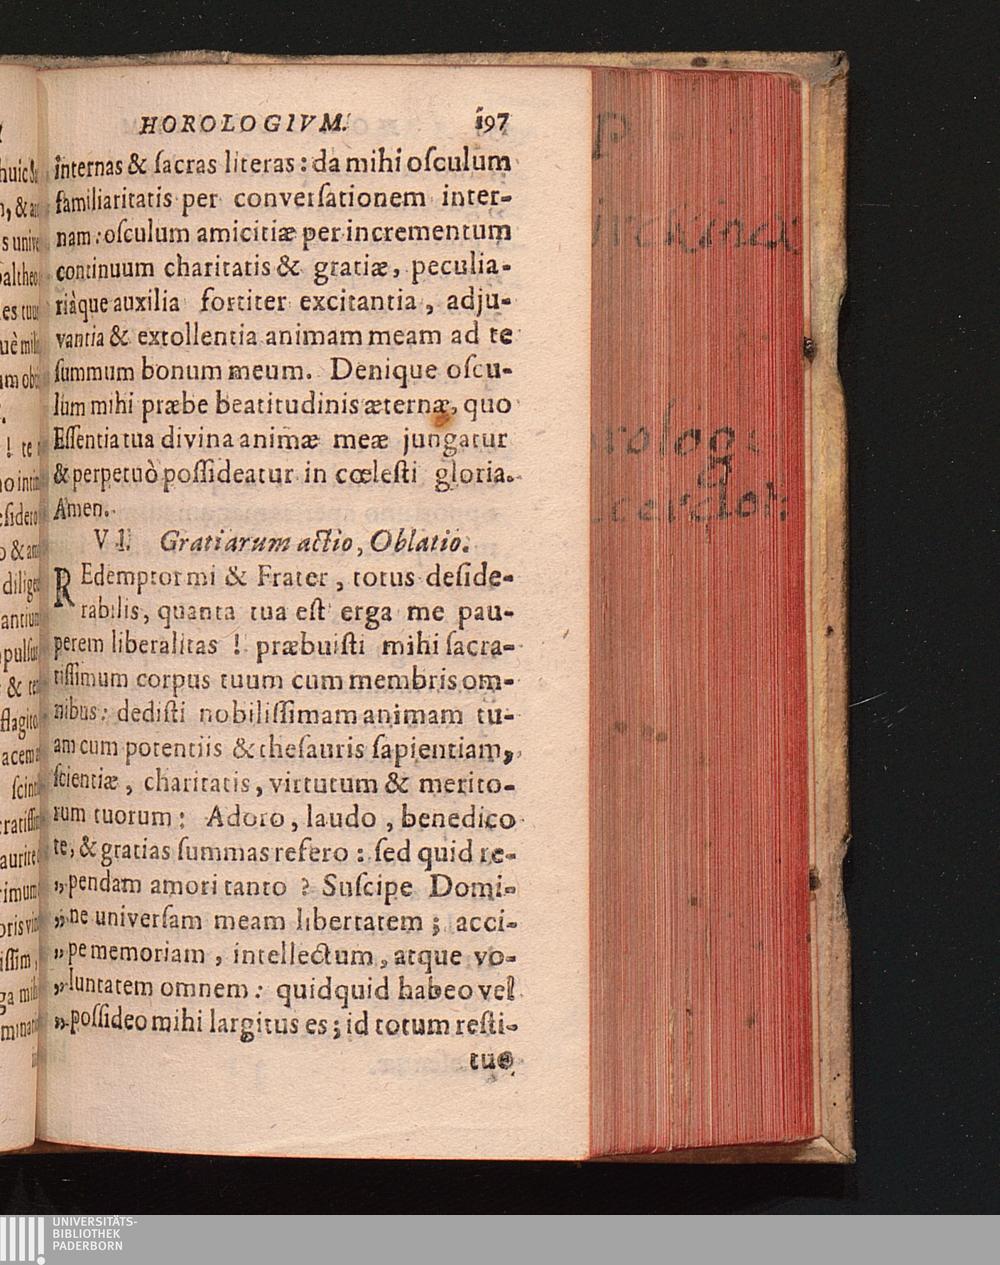 HOROLOGIVM. 197
internas & ſacras literas : da mihi oſculum
familiaritatis per converſationem inter-
nam : oſculum amicitiæ per incrementum
continuum charitatis & gratiæ, peculia-
riàque auxilia fortiter excitantia, adju-
vantia & extollentia animam meam ad te
ſummum bonum meum. Denique oſcu-
lum mihi præbe beatitudinis æternæ, quo
Eſſentia tua divina animæ meæ jungatur
& perpetuò poſſideatur in cœleſti gloria.
Amen.
VI. Gratiarum actio, Oblatio.
REdemptor mi & Frater, totus deſide-
rabilis, quanta tua eſt erga me pau-
perem liberalitas ! præbuiſti mihi ſacra-
tiſſimum corpus tuum cum membris om-
nibus : dediſti nobiliſſimam animam tu-
am cum potentiis & theſauris ſapientiam,
ſcientiæ, charitatis, virtutum & merito-
rum tuorum : Adoro, laudo, benedico
te, & gratias ſummas refero : ſed quid re-
„pendam amori tanto ? Suſcipe Domi-
„ne univerſam meam libertatem ; acci-
„pe memoriam, intellectum, atque vo-
„luntatem omnem : quidquid habeo vel
„poſſideo mihi largitus es ; id totum reſti-
tuo
UNIVERSITÄTS-
BIBLIOTHEK
PADERBORN